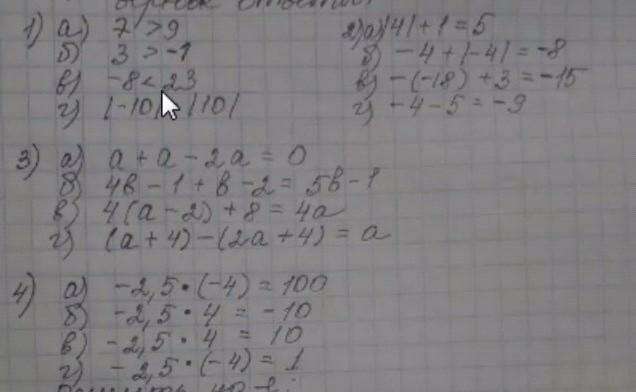 1) а) 7 > 9
б) 3 > -1
в) -8 < 23
г) |-10| |10|
2) а) |4| + 1 = 5
б) -4 + |-4| = -8
в) -(-18) + 3 = -15
г) -4 - 5 = -9
3) а) a + a - 2a = 0
б) 4b - 1 + b - 2 = 5b - 1
в) 4(a - 2) + 8 = 4a
г) (a + 4) - (2a + 4) = a
4) а) -2,5 · (-4) = 100
б) -2,5 · 4 = -10
в) -2,5 · 4 = 10
г) -2,5 · (-4) = 1